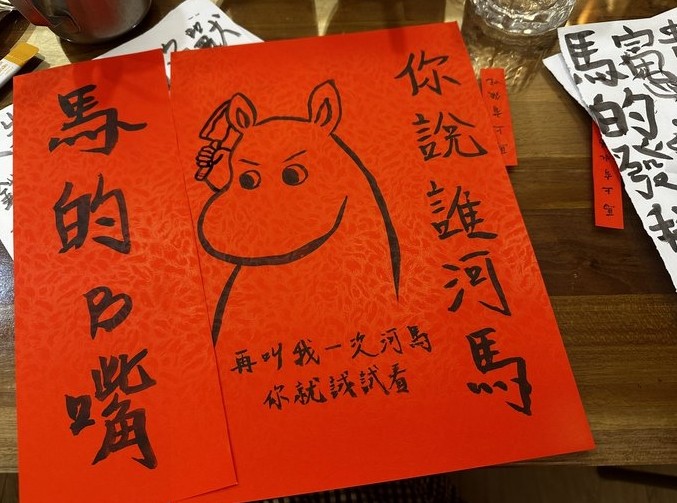 馬的發
你說誰河馬
再叫我一次河馬
你就試試看
馬的B嘴